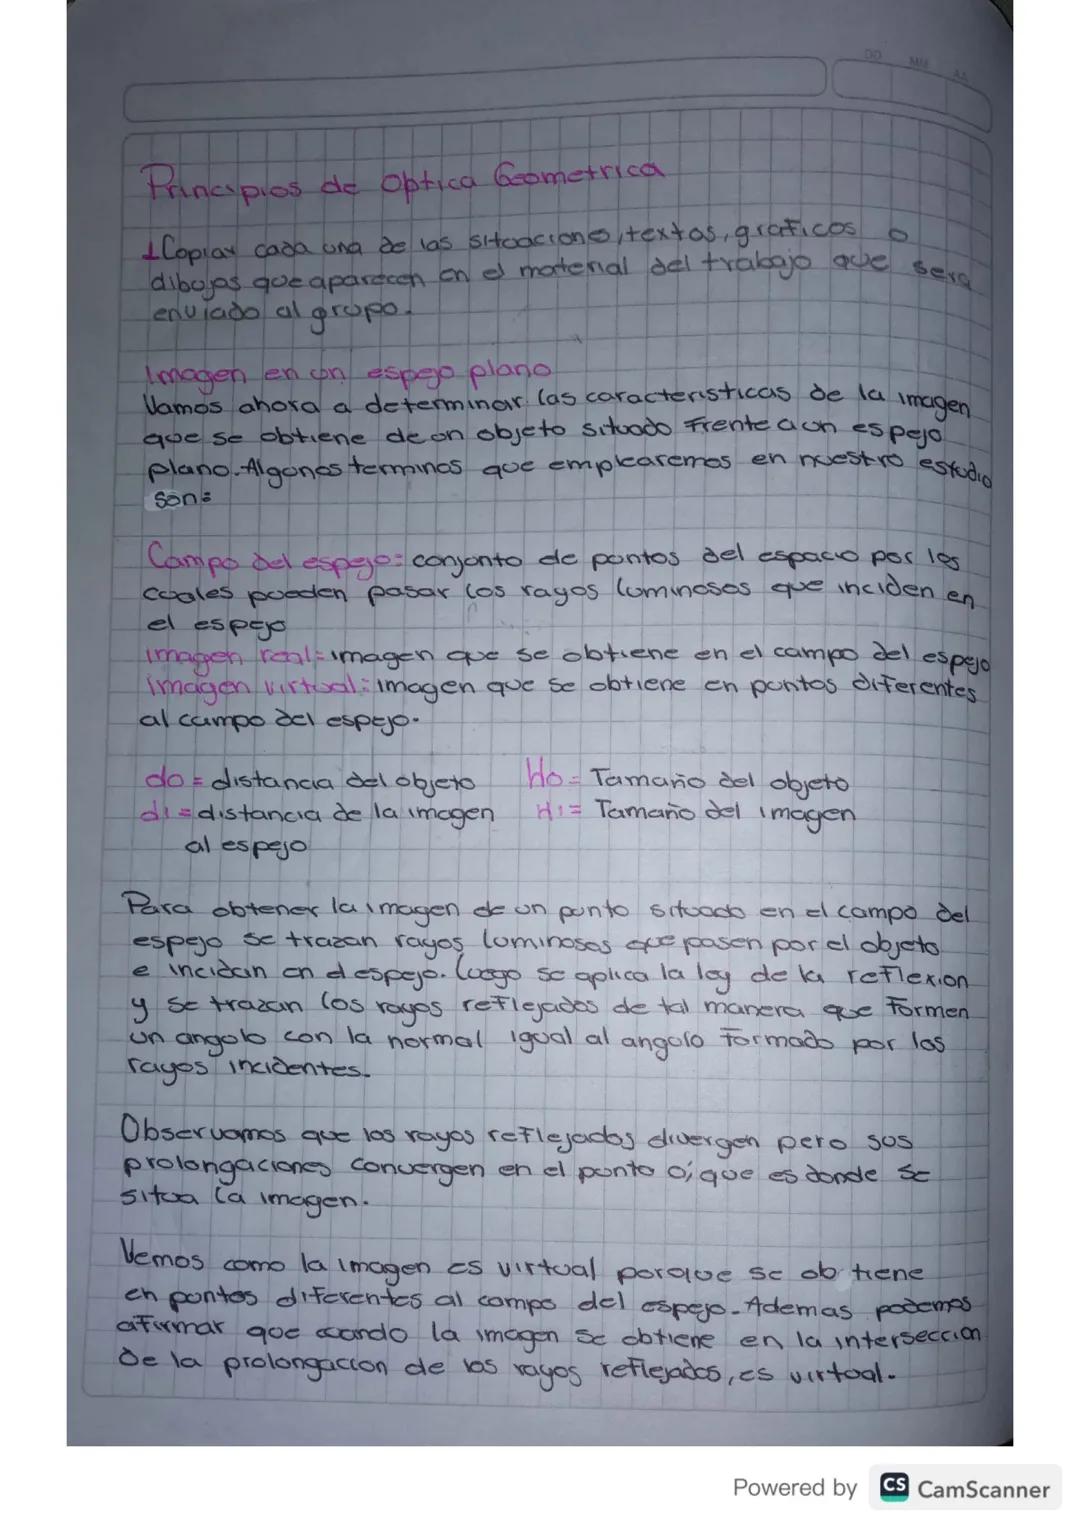 DD MM AA
Principios de Optica Geometrica
1 Copiar cada una de las situaciones, textos, graficos o
dibujos que aparecen en el material del trabajo que sera
enviado al grupo.
Imagen en un espejo plano
Vamos ahora a determinar las caracteristicas de la imagen
que se obtiene de un objeto situado Frente a un espejo
plano. Algunos terminos que emplearemos en nuestro estudio
son:
Campo del espejo: conjunto de puntos del espacio por los
cuales pueden pasar los rayos luminosos que inciden en
el espejo
imagen real: imagen que se obtiene en el campo del espejo
imagen virtual: imagen que se obtiene en puntos diferentes
al campo del espejo.
do = distancia del objeto Ho = Tamaño del objeto
di = distancia de la imagen Hi = Tamaño del imagen
al espejo
Para obtener la imagen de un punto situado en el campo del
espejo se trazan rayos luminosos que pasen por el objeto
e incidan en el espejo. Luego se aplica la ley de la reflexion
y se trazan los rayos reflejados de tal manera que Formen
un angulo con la normal igual al angulo formado por los
rayos incidentes.
Observamos que los rayos reflejados divergen pero sus
prolongaciones convergen en el punto o; que es donde se
situa la imagen.
Vemos como la imagen es virtual porque se obtiene
en puntos diferentes al campo del espejo. Ademas podemos
afirmar que cuando la imagen se obtiene en la interseccion
De la prolongacion de los rayos reflejados, es virtual.
Powered by CS CamScanner